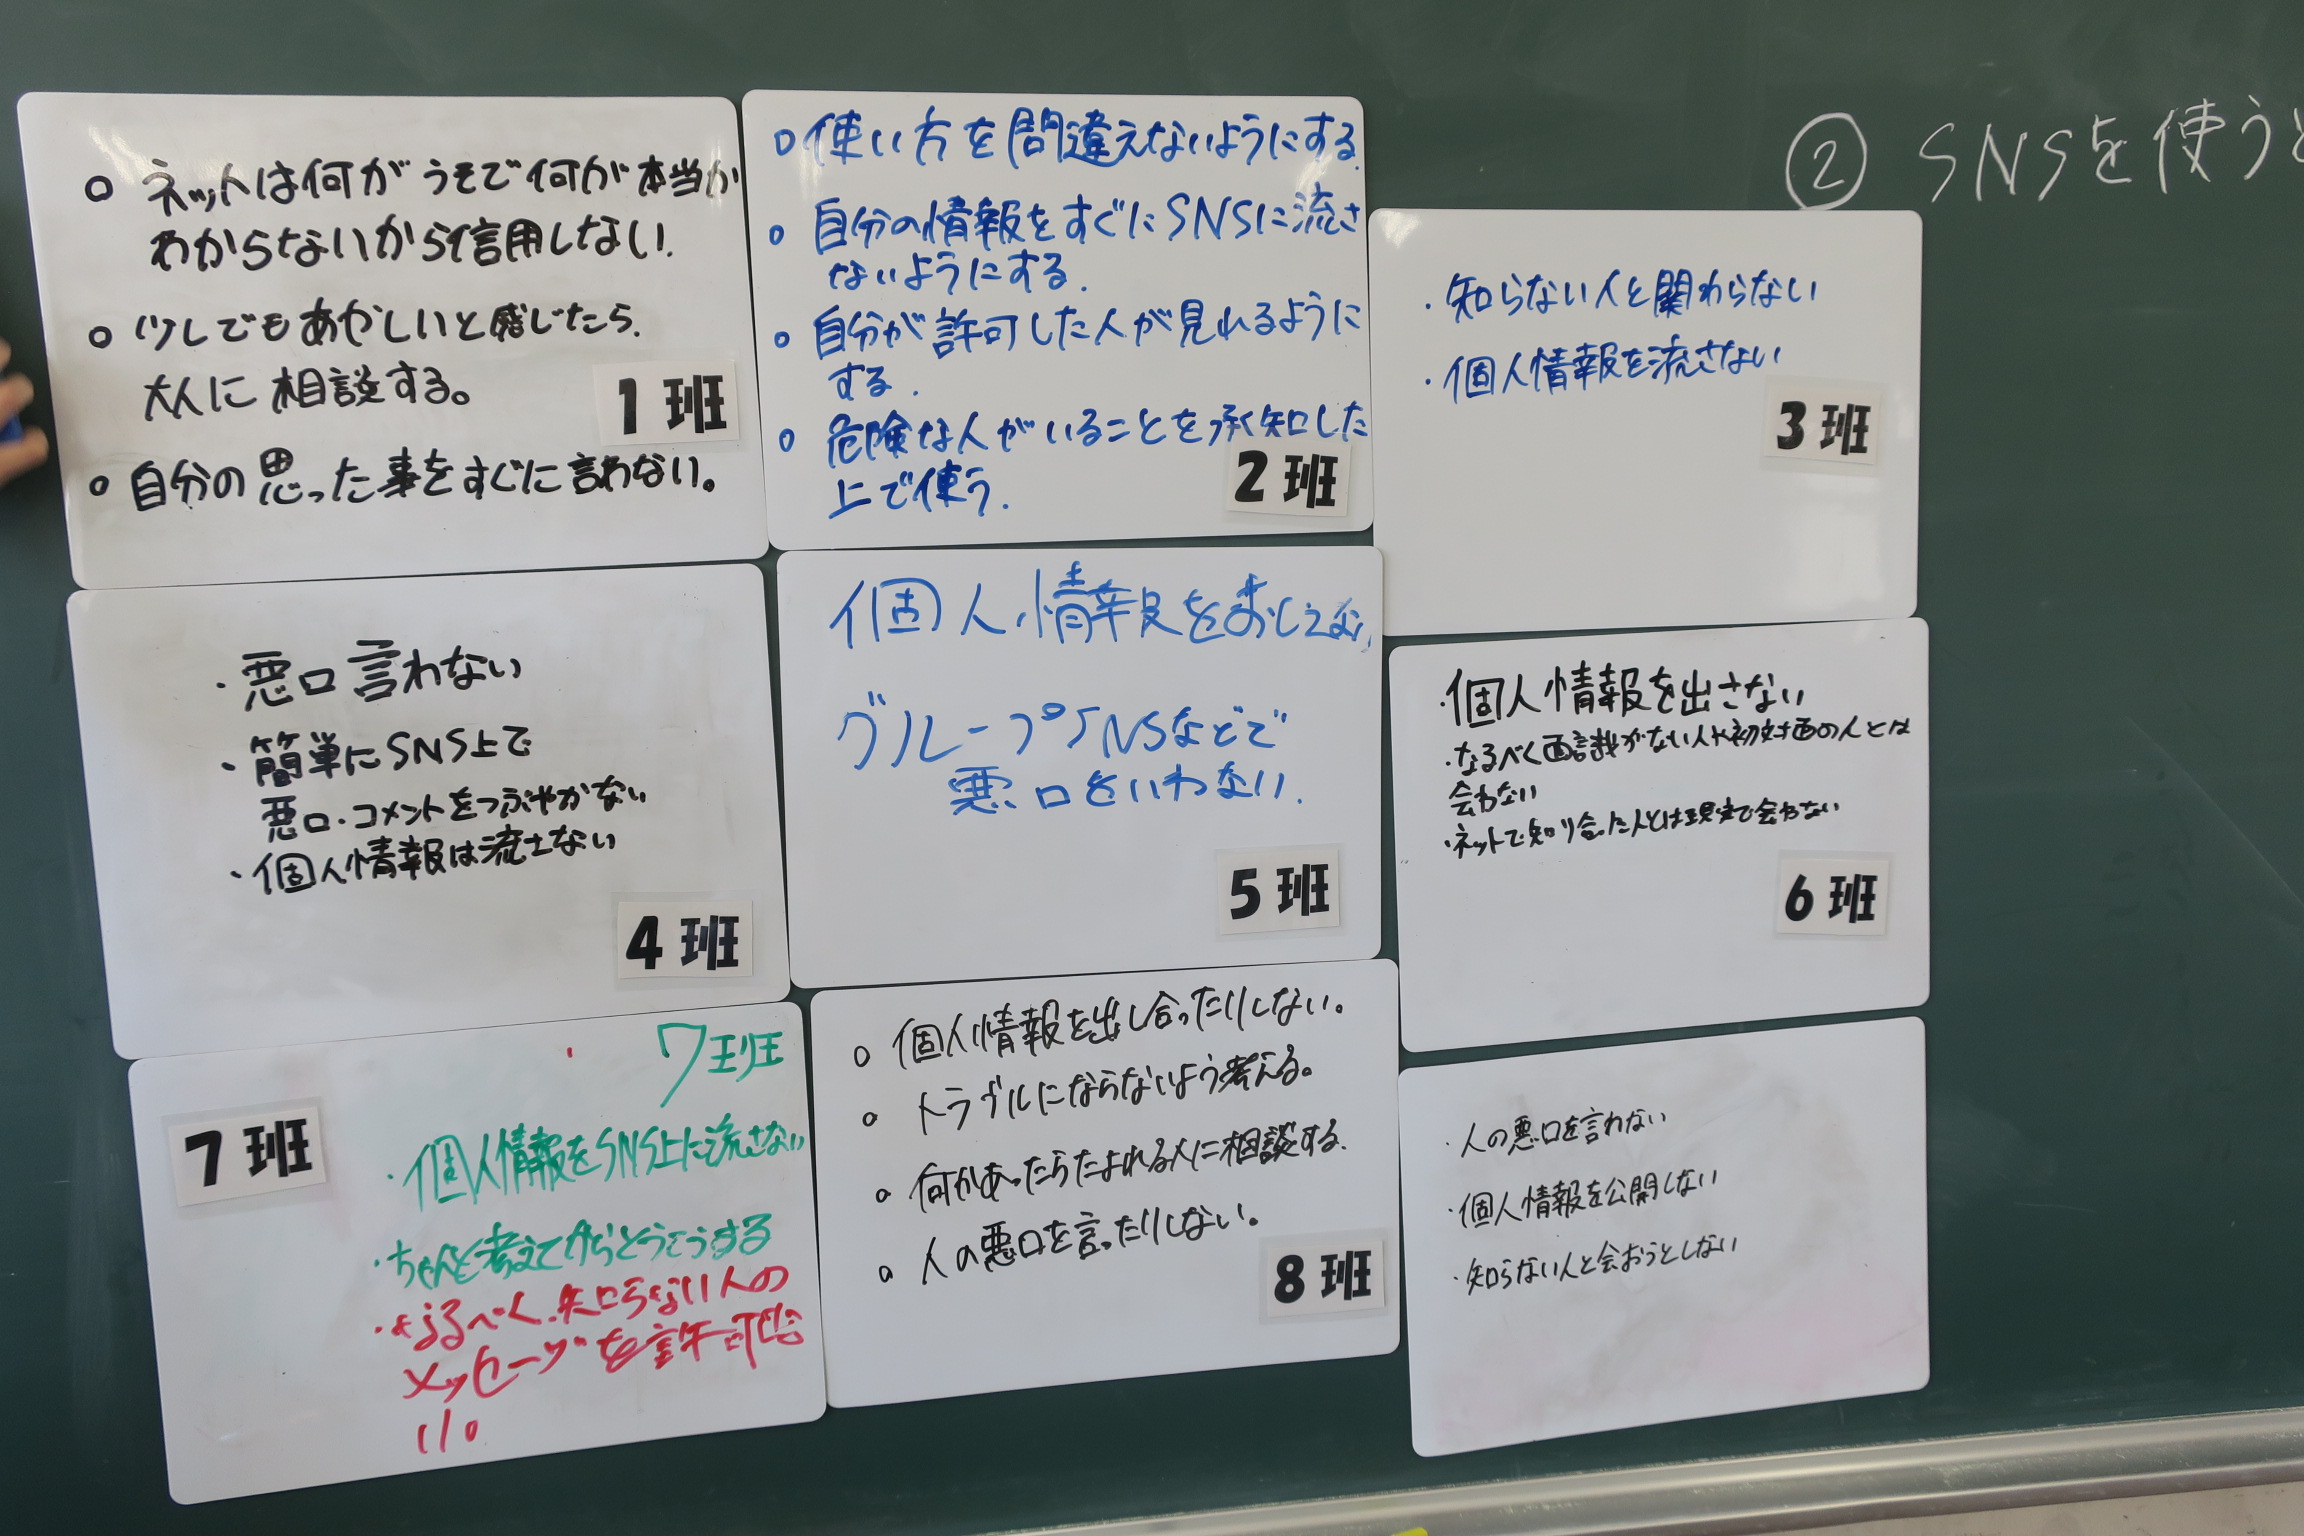 ② SNSを使うと
○ ネットは何がうそで何が本当か
わからないから信用しない!
○ 少しでもあやしいと感じたら、
大人に相談する。
1班
○ 自分の思った事をすぐに言わない。
○使い方を間違えないようにする
○ 自分の情報をすぐにSNSに流さ
ないようにする.
○ 自分が許可した人が見れるように
する.
○ 危険な人がいることを承知した
上で使う.
2班
・知らない人と関わらない
・個人情報を流さない
3班
・悪口言わない
・簡単にSNS上で
悪口・コメントをつぶやかない
・個人情報は流さない
4班
個人情報をおしえない
グループSNSなどで
悪口をいわない.
5班
・個人情報を出さない
・なるべく面識がない人や初対面の人とは
会わない
・ネットで知り合った人とは現実で会わない
6班
7班
7班
・個人情報をSNS上に流さない
・ちゃんと考えてからとうこうする
・なるべく、知らない人の
メッセージを許可
い。
○ 個人情報を出し合ったりしない。
○ トラブルにならないよう考える。
○ 何かあったらたよれる人に相談する.
○ 人の悪口を言ったりしない。
8班
・人の悪口を言わない
・個人情報を公開しない
・知らない人と会おうとしない